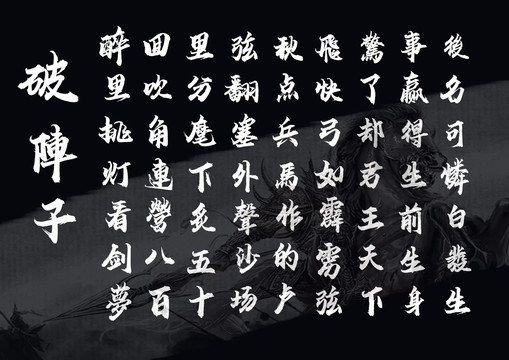 破陣子
醉里挑灯看剑夢
回吹角連營八百
里分麾下炙五十
弦翻塞外聲沙场
秋点兵馬作的卢
飛快弓如霹雳弦
驚了却君王天下
事赢得生前生身
後名可憐白發生